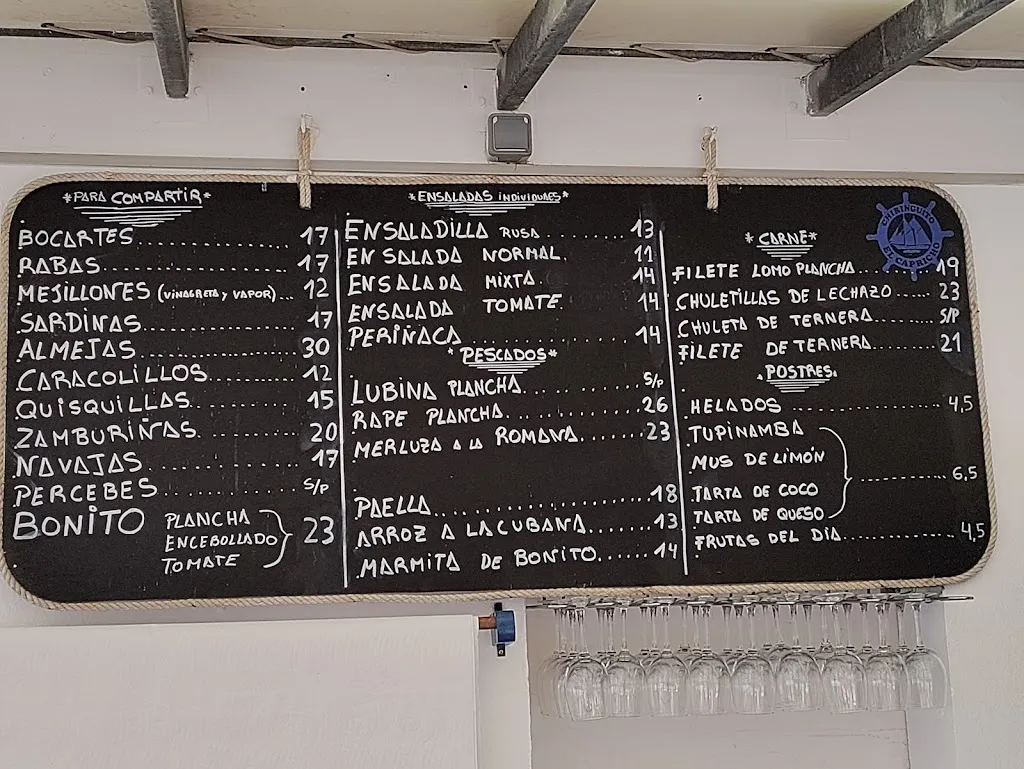 *PARA COMPARTIR*
BOCARTES................ 17
RABAS..................... 17
MEJILLONES (VINAGRETA Y VAPOR)... 12
SARDINAS.................. 17
ALMEJAS................... 30
CARACOLILLOS........... 12
QUISQUILLAS............. 15
ZAMBURIÑAS............. 20
NAVAJAS................... 17
PERCEBES................. S/P
BONITO PLANCHA
ENCEBOLLADO 23
TOMATE
*ENSALADAS INDIVIDUAES*
ENSALADILLA RUSA......... 13
ENSALADA NORMAL. 11
ENSALADA MIXTA. 14
ENSALADA TOMATE. 14
PERIÑACA................. 14
*PESCADOS*
LUBINA PLANCHA........... S/P
RAPE PLANCHA............. 26
MERLUZA A LA ROMANA....... 23
PAELLA..................... 18
ARROZ A LA CUBANA....... 13
MARMITA DE BONITO....... 14
*CARNE*
FILETE LOMO PLANCHA.... 19
CHULETILLAS DE LECHAZO..... 23
CHULETA DE TERNERA....... S/P
FILETE DE TERNERA........ 21
.POSTRES.
HELADOS................... 4,5
TUPINAMBA
MUS DE LIMÓN
............... 6,5
TARTA DE COCO
TARTA DE QUESO
FRUTAS DEL DIA............. 4,5
CHIRINGUITO
EL CAPRICHO